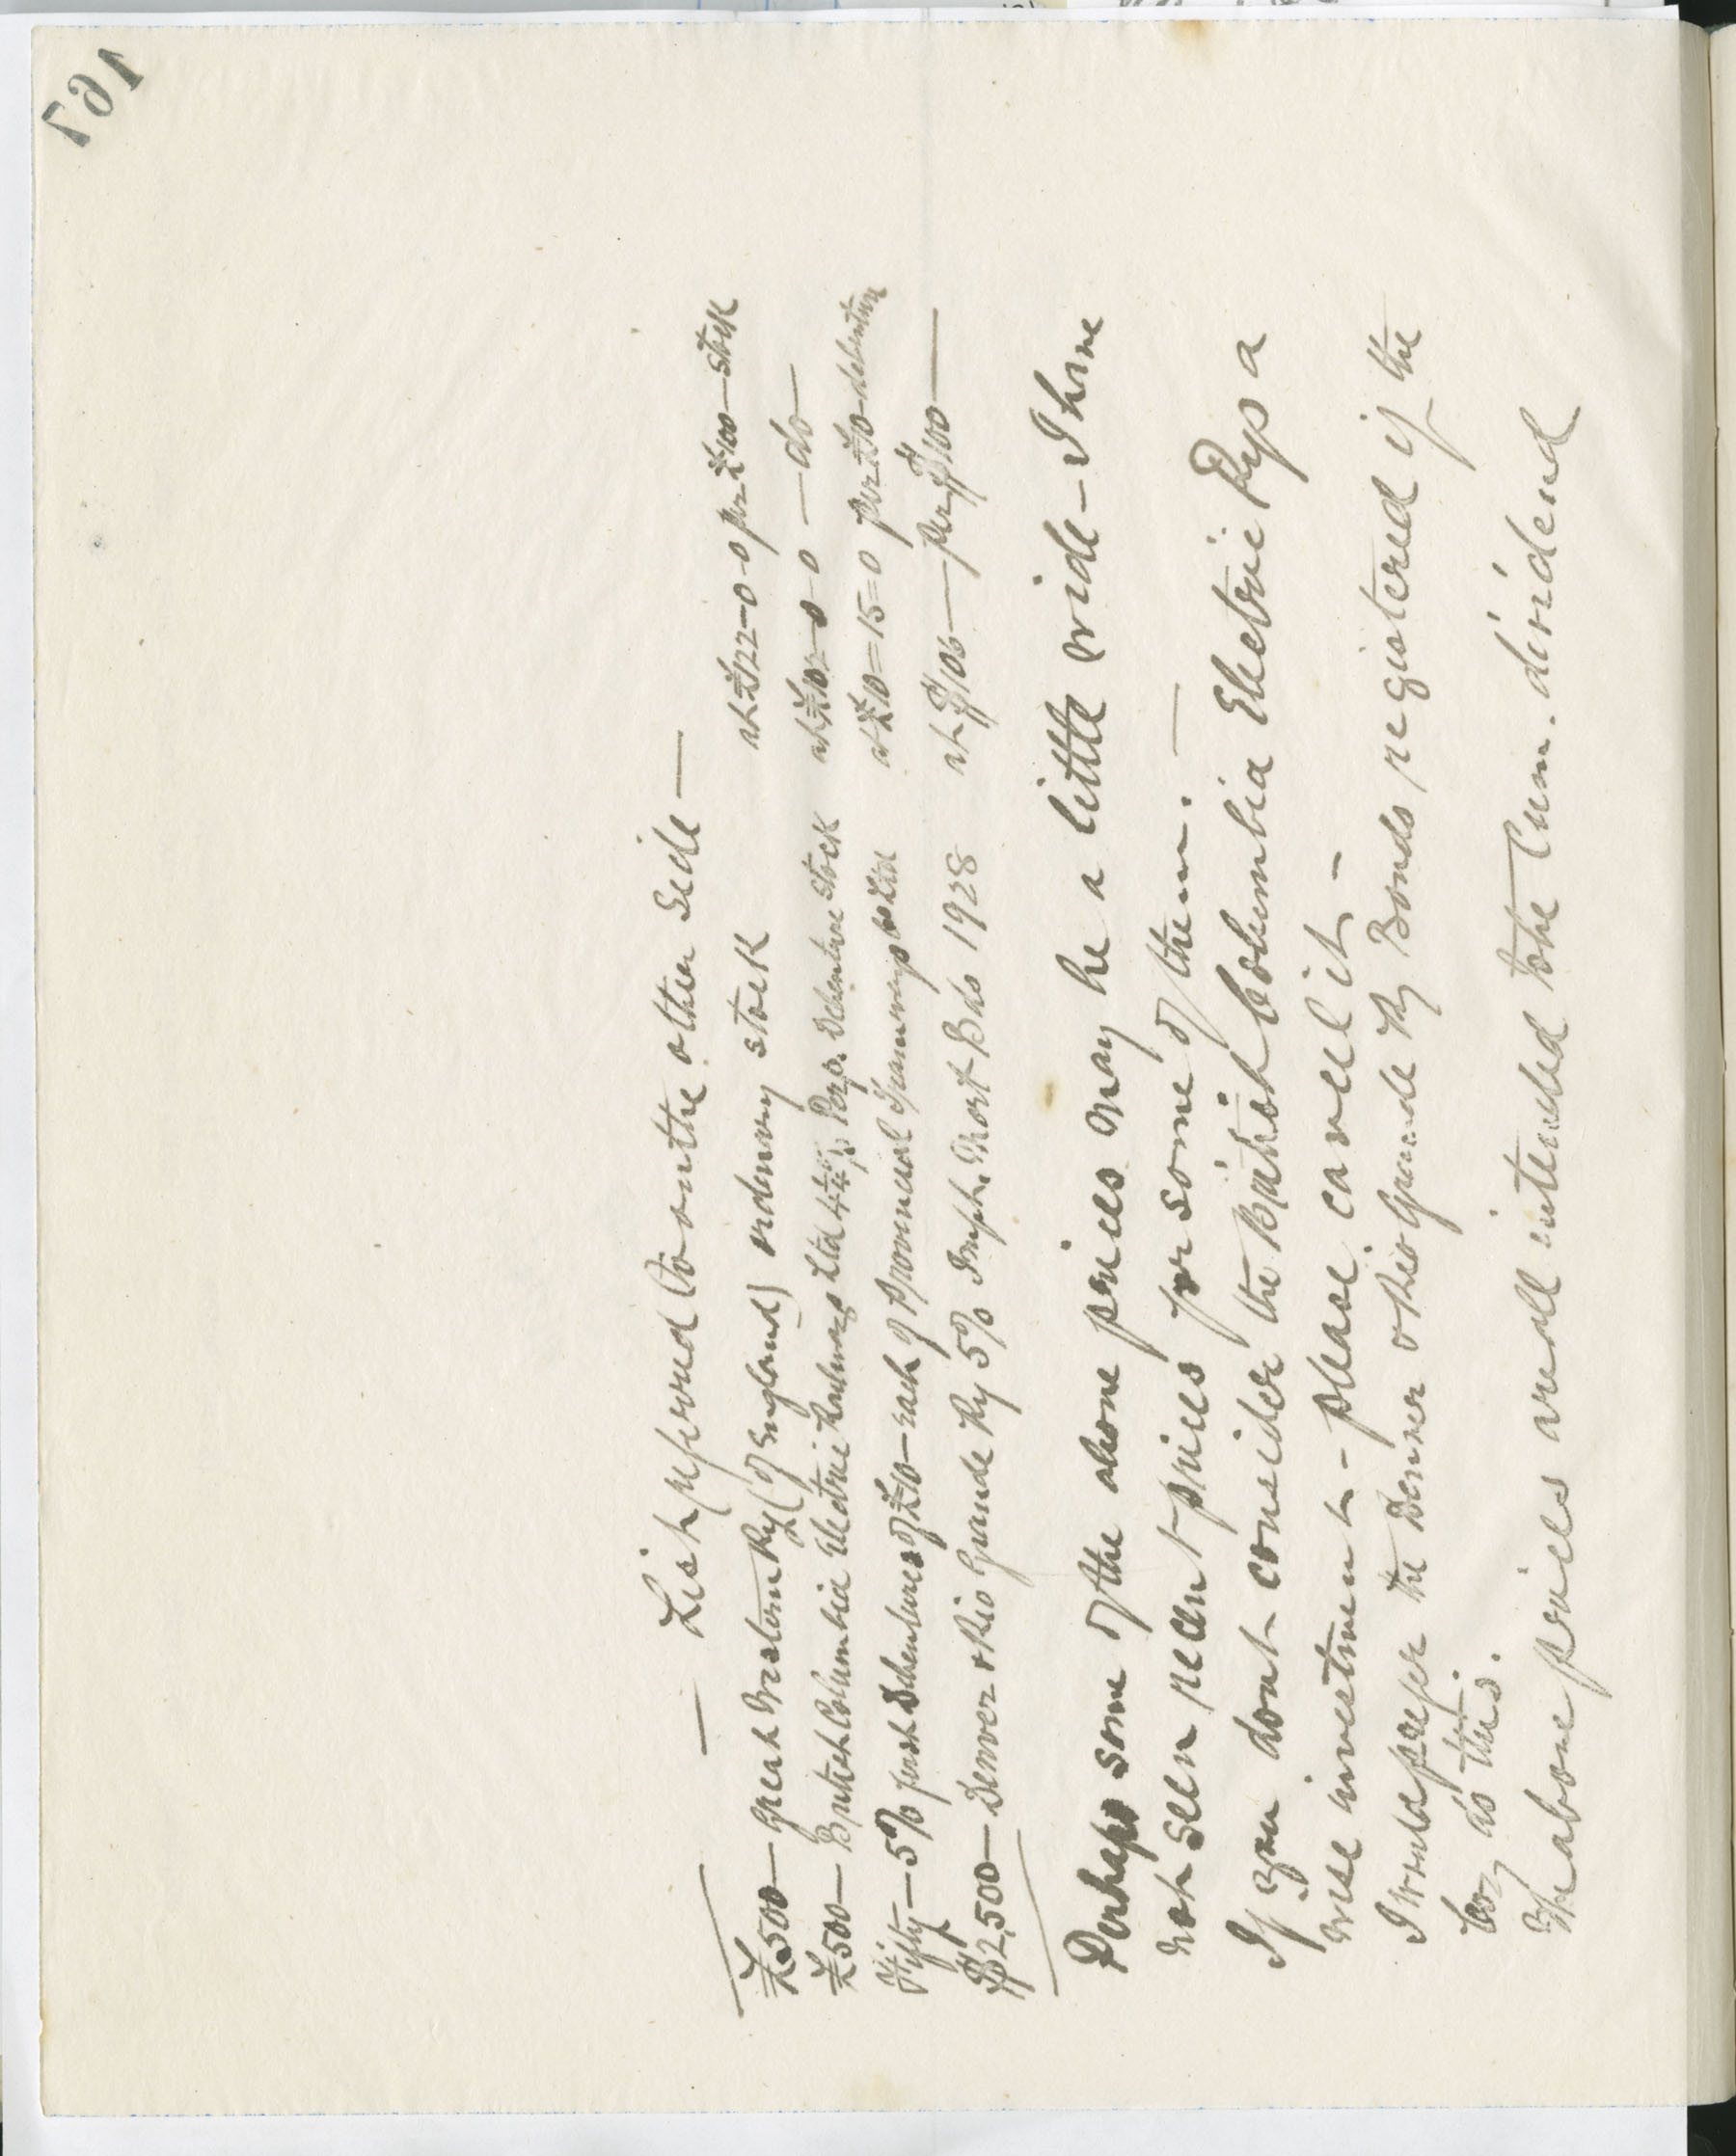 161
— List referred to on the other side —
£500 — Great Western Ry (of England) ordinary stock at £122-0-0 per £100 — stock
£500 — British Columbia Electric Railways Ltd 4¼% Perp. Debenture stock at £102-0-0 — do —
Fifty — 5% first Debentures of £10 — each of Provincial Tramways Co Ltd at £10=15=0 per £10 debenture
$2,500 — Denver & Rio Grande Ry 5% Impt. Mort Bds 1928 at $106 — per $100 —
Perhaps some of the above prices may be a little wide — I have
not seen recent prices for some of them. —
If you dont consider the British Columbia Electric Rys a
wise investment — please cancel it —
I would prefer the Denver & Rio Grande Ry Bonds registered if the
Co. do this.
The above prices are all intended to be Cum. dividend